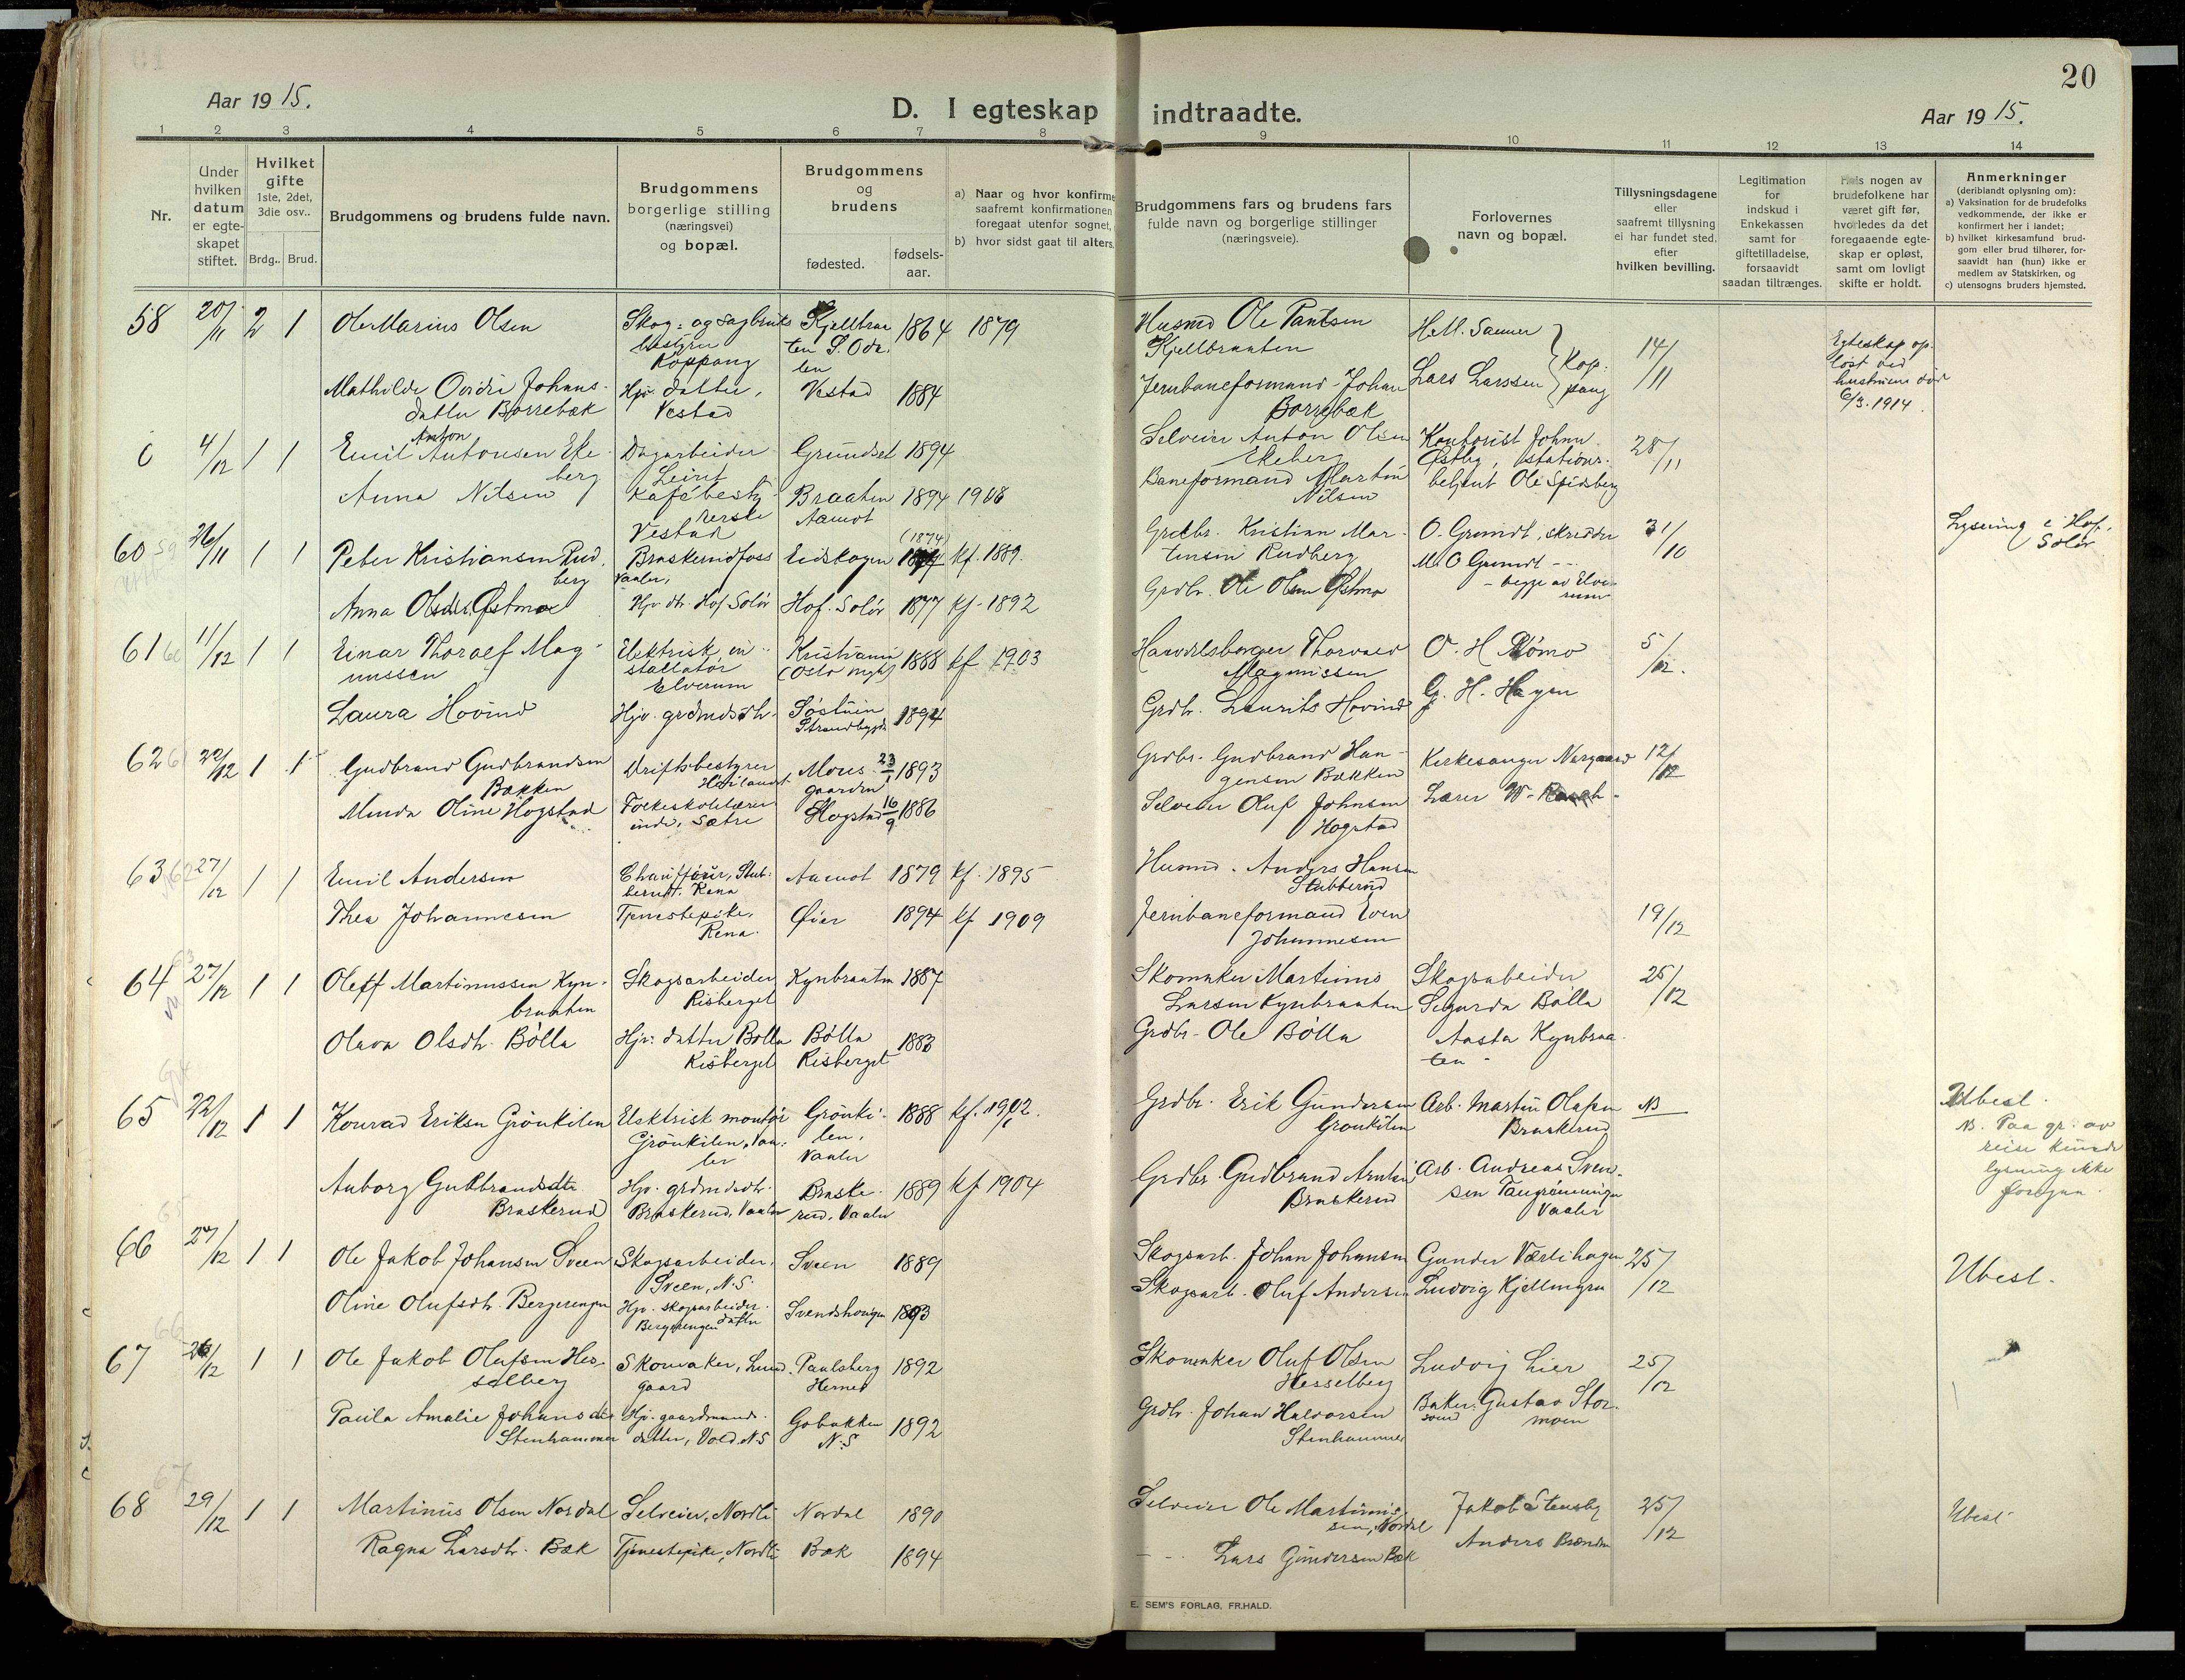 20
Aar 1915.
D. I egteskap indtraadte.
Aar 1915.
1 2 3 4 5 6 7 8 9 10 11 12 13 14
Nr.
Under
hvilken
datum
er egte-
skapet
stiftet.
Hvilket
gifte
1ste, 2det,
3die osv..
Brdg.. Brud.
Brudgommens og brudens fulde navn.
Brudgommens
borgerlige stilling
(næringsvei)
og bopæl.
Brudgommens
og
brudens
fødested.
fødsels-
aar.
a) Naar og hvor konfirme
saafremt konfirmationen
foregaat utenfor sognet,
b) hvor sidst gaat til alters.
Brudgommens fars og brudens fars
fulde navn og borgerlige stillinger
(næringsveie).
Forlovernes
navn og bopæl.
Tillysningsdagene
eller
saafremt tillysning
ei har fundet sted.
efter
hvilken bevilling.
Legitimation
for
indskud i
Enkekassen
samt for
giftetilladelse,
forsaavidt
saadan tiltrænges.
Hvis nogen av
brudefolkene har
været gift før,
hvorledes da det
foregaaende egte-
skap er opløst,
samt om lovligt
skifte er holdt.
Anmerkninger
(deriblandt oplysning om):
a) Vaksination for de brudefolks
vedkommende, der ikke er
konfirmert her i landet;
b) hvilket kirkesamfund brud-
gom eller brud tilhører, for-
saavidt han (hun) ikke er
medlem av Statskirken, og
c) utensogns bruders hjemsted.
58 20/11 2 1 Ole Marius Olsen
Skog- og sagbruks
bestyrer
Koppang
Kjellbraa
ten S. Oda
len
1864 1879
Husmd Ole Paulsen
Kjellbraaten
H. M. Sauner
Lars Larssen
Kop-
pang
14/11
Egteskap op-
løst ved
hustruens død
6/3. 1914.
Mathilde Ovidie Johans-
datter Borrebæk
Hjv. datter,
Vestad
Vestad 1884
Jernbaneformand Johan
Borrebæk
0 4/12 1 1 Emil Anton Antonsen Eke-
berg
Dagarbeider
Leiret
Grundset 1894
Selveier Anton Olsen
Ekeberg
Kontorist Johan
Østby, stations-
betjent Ole Spidsberg
28/11
Anna Nilsen
Kafébesty-
rerske
Vestad
Braaten
Aamot
1894 1908
Baneformand Martin
Nilsen
60 59 26/11 1 1 Peter Kristiansen Rud-
berg
Braskerudfoss
Vaaler,
Eidskogen (1874) kf. 1889.
Grdbr. Kristian Mar-
tensen Rudberg
O. Grundt, skrædder
M. O Grundt --
- begge av Elve-
rum
31/10
Lysning i Hof,
Solør
Anna Olsdtr. Østmoe
Hjv. dtr. Hof Solør
Hof. Solør 1877 kf. 1892
Grdbr. Ole Olsen Østmo
61 60 11/12 1 1 Einar Thoralf Mag-
nussen
Elektrisk in-
stallatør
Elverum
Kristiania
1888 kf 1903
Handelsborger Thorvald
Magnussen
O. H Rømo
G. H. Hagen
5/12.
Laura Hovind
Hjv. grdmdsdtr.
Søstuen
Strandbygda
1894
Grdbr. Laurits Hovind
62 61 22/12 1 1 Gudbrand Gudbrandsen
Bakken
Driftsbestyrer
Mons-
gaarden
23/1 1893
Grdbr. Gudbrand Han-
gensen Bakken
Kirkesanger Norgaard
Lærer W.
12/12
Minda Oline Hogstad
Folkeskolelærer-
inde, Sætre
Hogstad 16/9 1886
Selveier Oluf Johnsen
Hogstad
63 62 27/12 1 1 Emil Andersen
Chauffør, Stub-
berudt. Rena
Aamot 1879 kf. 1895
Husmd. Anders Hansen
Stubberud
Thea Johannesen
Tjenestepike.
Rena.
Øier 1894 kf 1909
Jernbaneformand Even
Johannesen
19/12
64 63 27/12 1 1 Oleff Martinussen Kyn-
braaten
Skogsarbeider
Risberget
Kynbraaten 1887
Skomaker Martinus
Larsen Kynbraaten
Skogsarbeider
Sigurd Bølla
Aasta Kynbraa-
ten -
25/12
Olava Olsdtr. Bølla
Hjv. datter Bølla
Risberget
Bølla
Risberget
1883
Grdbr. Ole Bølla
65 22/12 1 1 Konrad Eriksen Grönkilen
Elektrisk montør
Grönkilen, Vaa-
ler
Grönki-
len,
Vaaler
1888 kf. 1902.
Grdbr. Erik Gundersen
Gronkilen
Arb. Martin Olafsen
Braskerud
NB
Ubest.
NB. Paa gr. av
reise kunde
lysning ikke
foregaa.
Anborg Gulbrandsdtr
Braskerud
Hjv. grdmdsdtr.
Braskerud, Vaaler
Braske-
rud, Vaaler
1889 kf 1904
Grdbr. Gudbrand Arntsen
Braskerud
Arb. Andreas Sven-
sen
Vaaler
66 27/12 1 1 Ole Jakob Johansen Sveen
Skogsarbeider.
Sveen, N. S.
Sveen 1889
Skogsarb. Johan Johansen
Gunder Værlihagen
Ludvig Kjellmyren
25/12
Ubest.
Oline Olufsdtr. Bergerengen
Hjv. skogsarbeider-
datter
Bergerengen
Svendshaugen 1893
Skogsarb. Oluf Andersen
67 26/12 1 1 Ole Jakob Olufsen Hes-
selberg
Skomaker, Lund-
gaard
Paulsberg
Hernes
1892
Skomaker Oluf Olsen
Hesselberg
Ludvig Lier
25/12
Paula Amalie Johansdtr
Stenhammer
Hjv. gaardmands-
datter, Vold. N. S
Gobakken
N. S
1892
Grdbr. Johan Halvorsen
Stenhammer
Baker-
svend Gustav Stor-
moen
68 29/12 1 1 Martinus Olsen Nordal
Selveier, Nordli
Nordal 1890
Selveier Ole Martinus-
sen, Nordal
Jakob Stensby
25/12
Ubest.
Ragna Larsdtr. Bæk
Tjenestepike, Nordli
Bæk 1894
- - Lars Gundersen Bæk
Anders
E. SEM'S FORLAG, FR.HALD.